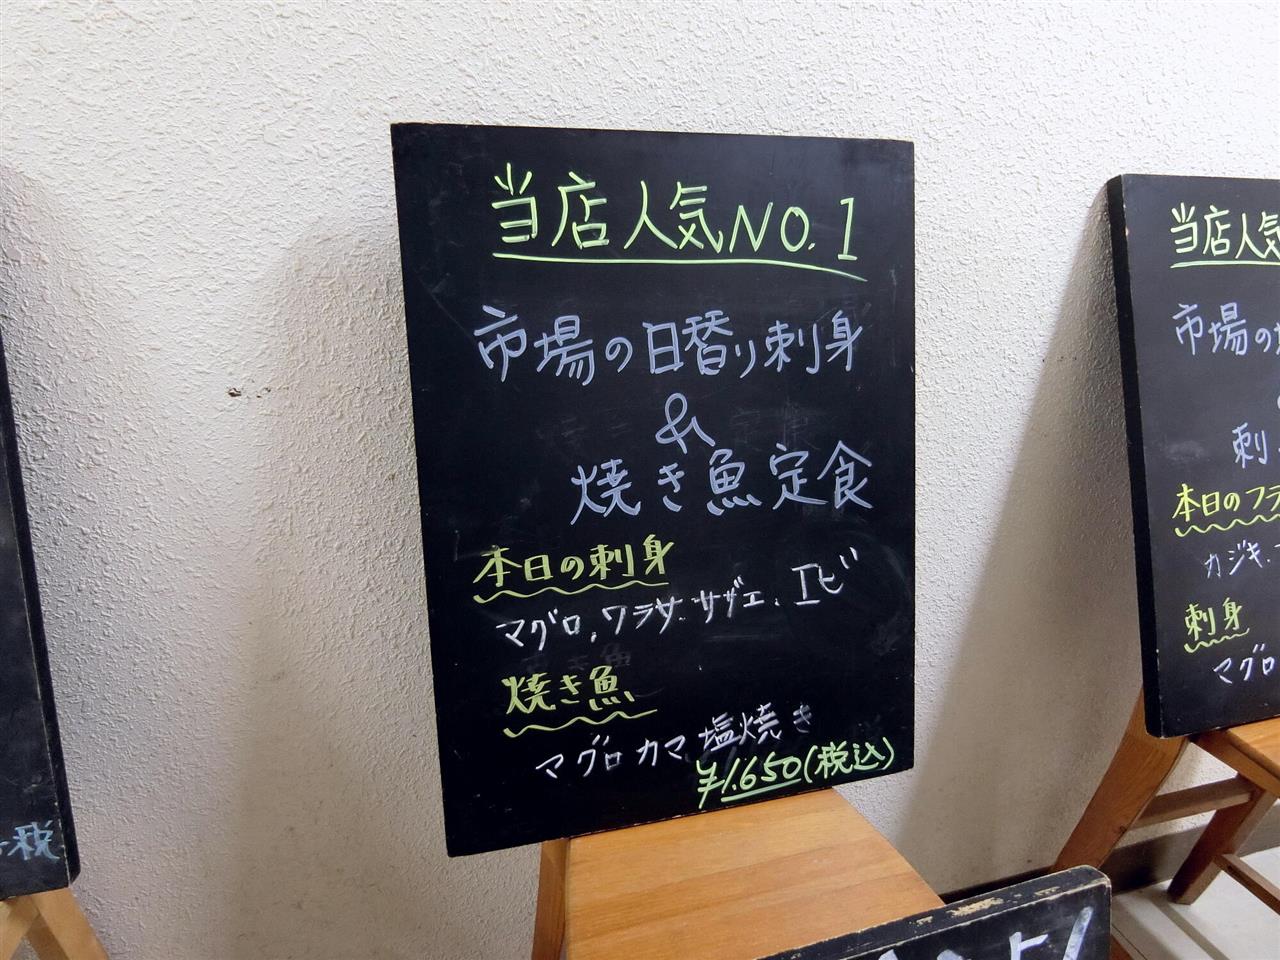 当店人気NO.1
市場の日替り刺身
&
焼き魚定食
本日の刺身
マグロ,ワラサ.サザエ.エビ
焼き魚
マグロカマ塩焼き
¥1.650(税込)
当店人気
市場の
刺
本日のフラ
カジキ.
刺身
マグロ
税